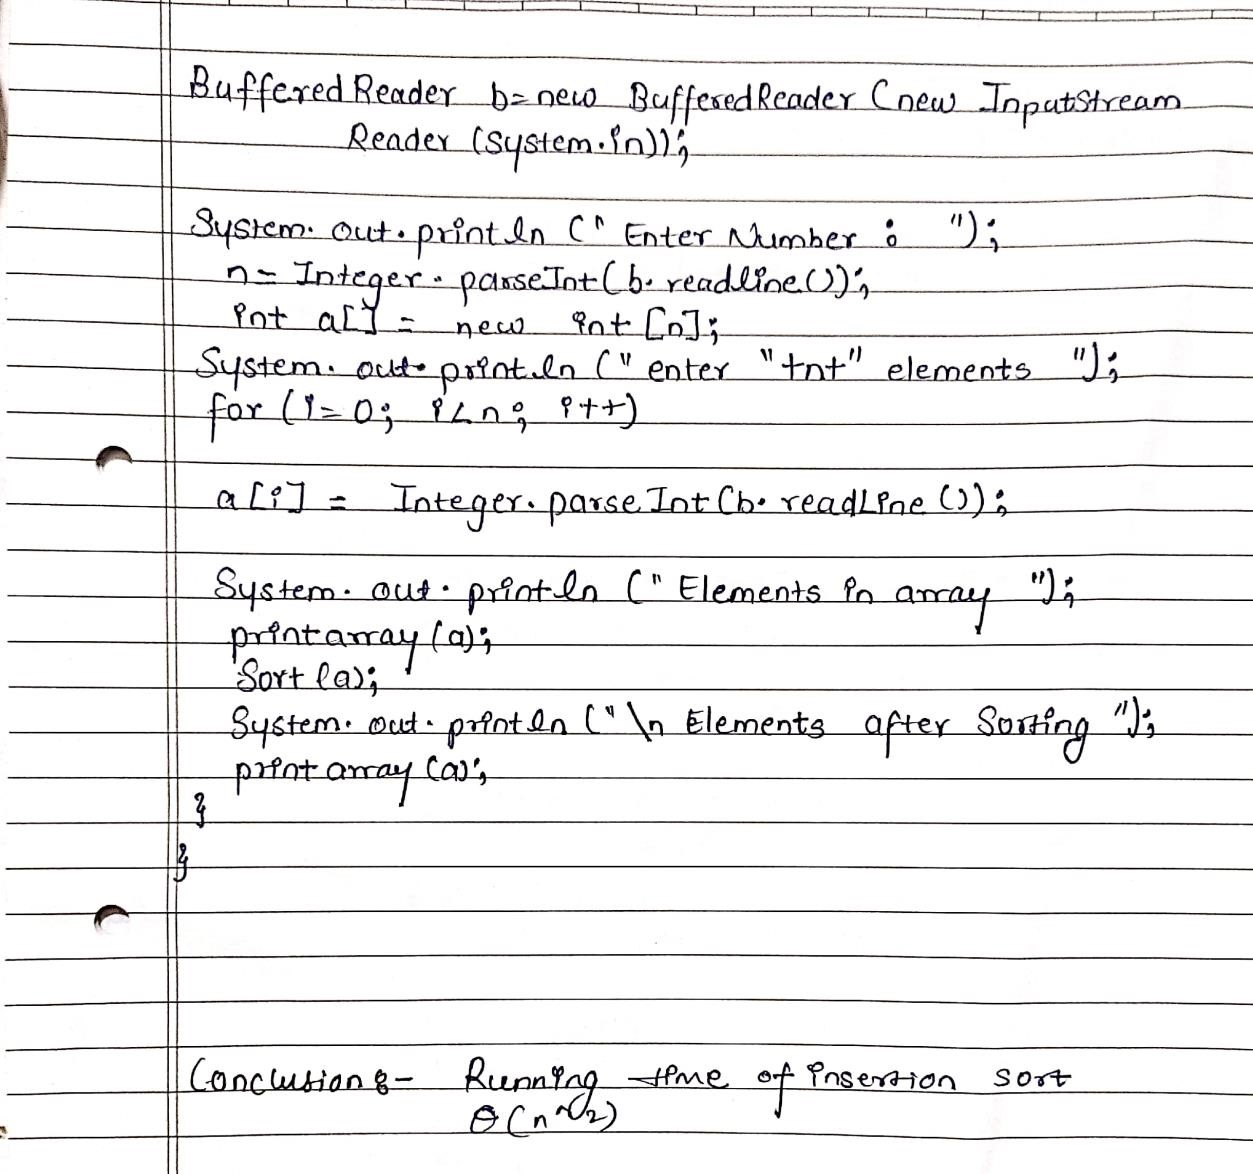 BufferedReader b= new BufferedReader (new InputStream
Reader (System.in));
System.out.println (" Enter Number : ");
n= Integer.parseInt(b.readline());
int a[] = new int [n];
System.out.println (" enter "+n+" elements ");
for (i=0; i<n; i++)
a[i] = Integer.parseInt(b.readLine());
System.out.println (" Elements in array ");
printarray(a);
Sort(a);
System.out.println ("\n Elements after Sorting ");
print array (a);
}
}
Conclusion :- Running time of insertion sort